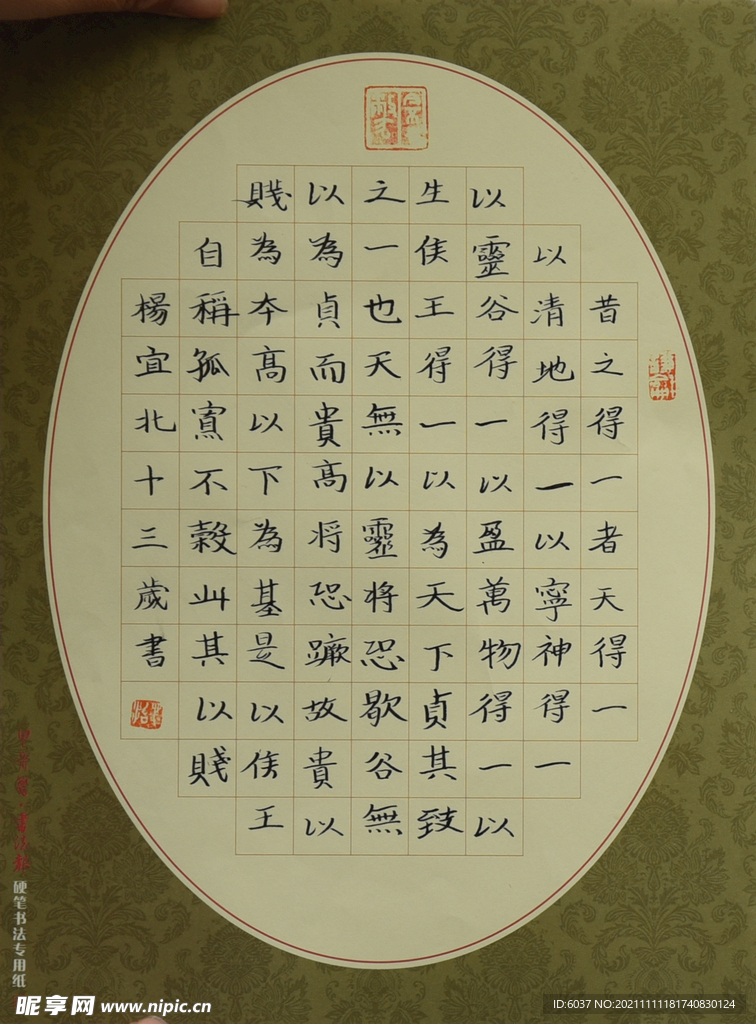 昔之得一者天得一
以清地得一以寧神得一
以靈谷得一以盈萬物得一以
生侯王得一以為天下貞其致
之一也天無以靈将恐歇谷無
以為貞而貴高将恐蹶故貴以
賤為夲高以下為基是以侯王
自稱孤寡不穀此其以賤
楊宜北十三歲書
硬笔书法专用纸
昵享网 www.nipic.cn
ID:6037 NO:20211111181740830124